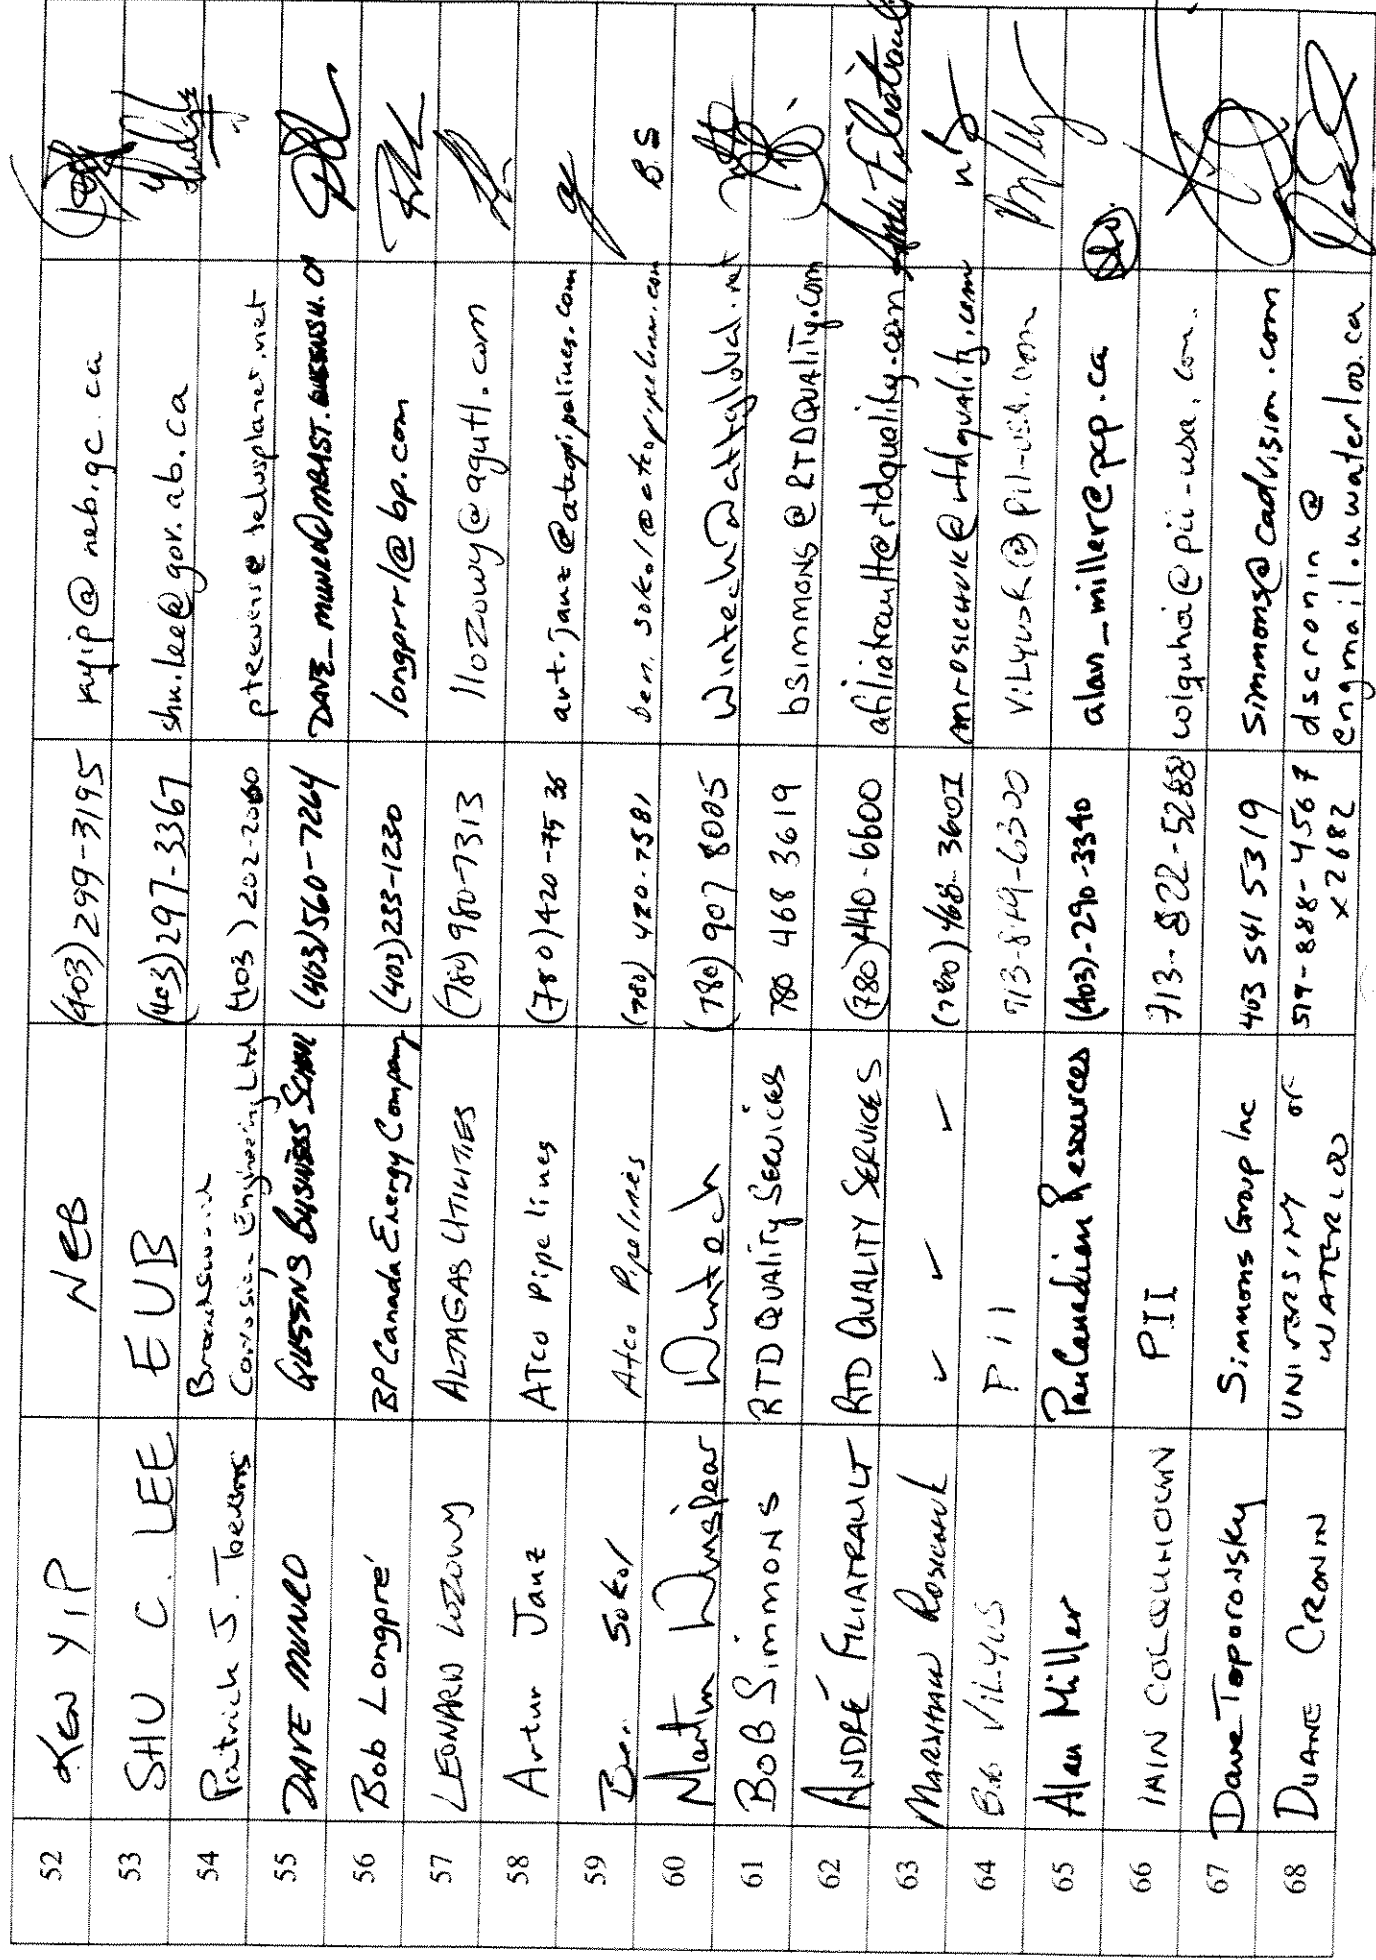 52 Ken Yip NEB (403) 299-3195 kyip@neb.gc.ca
53 SHU C. LEE EUB (403) 297-3367 shu.lee@gov.ab.ca
54 Patrick J. Corrosion Engineering Ltd (403) 202-
55 DAVE MUNRO QUEENS BUSINESS SCHOOL (403) 560-7264
56 Bob Longpré BP Canada Energy Company (403) 233-1230 longprrl@bp.com
57 LEONARD LOZOWY ALTAGAS UTILITIES (780) 980-7313 llozowy@agutl.com
58 Artur Janz ATCO Pipelines (780) 420-7536 art.janz@atcopipelines.com
59 Ben Sokol Atco Pipelines (780) 420-7581 ben.sokol@atcopipelines.com B.S
60 Martin Dunspear Wintech (780) 907 8005
61 BOB SIMMONS RTD QUALITY SERVICES 780 468 3619 bsimmons@RTDQUALITY.com
62 ANDRÉ FILIATRAULT RTD QUALITY SERVICES (780) 440-6600 afiliatrault@rtdquality.com
63 MARSHALL ROSICHUK ✓ ✓ ✓ (780) 468-3601 mrosichuk@rtdquality.com
64 Bob VILYUS PII 713-849-6300 VILYUSR@pii-usa.com
65 Alan Miller PanCanadian Resources (403)-290-3340 alan_miller@pcp.ca
66 IAIN COLQUHOUN PII 713-822-5288 colquhoi@pii-usa.com.
67 Dave Toporonsky Simmons Group Inc 403 541 5319 simmons@cadvision.com
68 DUANE CRONIN UNIVERSITY OF 519-888-4567 dscronin@
WATERLOO x2682 engmail.uwaterloo.ca